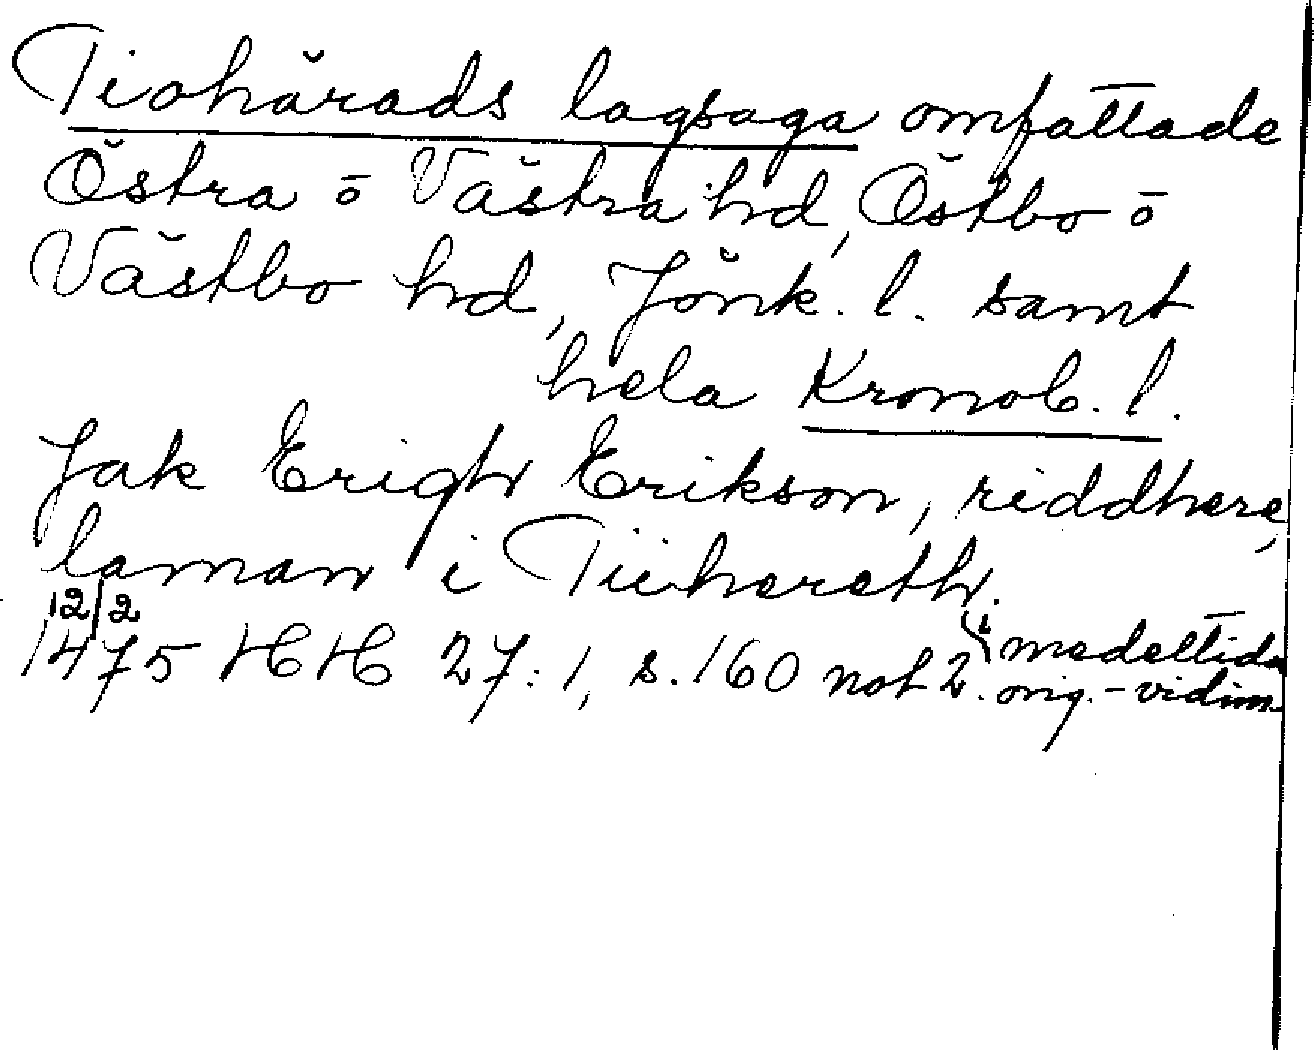 Tiohärads lagsaga omfattade
Östra o Västra hd, Östbo o
Västbo hd, Jönk. l. samt
hela Kronob. l.
Jak Erigh Erikson, riddhere,
laman i Tiiherath.
12/2
1475 HH 27:1, s. 160 not 2. i medeltida
orig.-vidim.